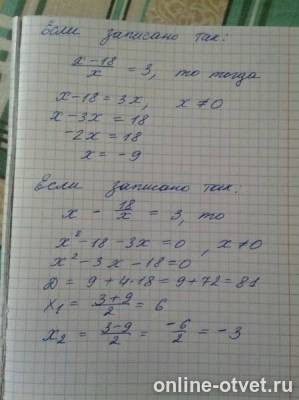 Если записано так:
x-18/x = 3, то тогда
x-18 = 3x, x ≠ 0
x-3x = 18
-2x = 18
x = -9
Если записано так:
x - 18/x = 3, то
x² - 18 - 3x = 0, x ≠ 0
x² - 3x - 18 = 0
D = 9 + 4·18 = 9 + 72 = 81
x₁ = 3+9/2 = 6
x₂ = 3-9/2 = -6/2 = -3
online-otvet.ru